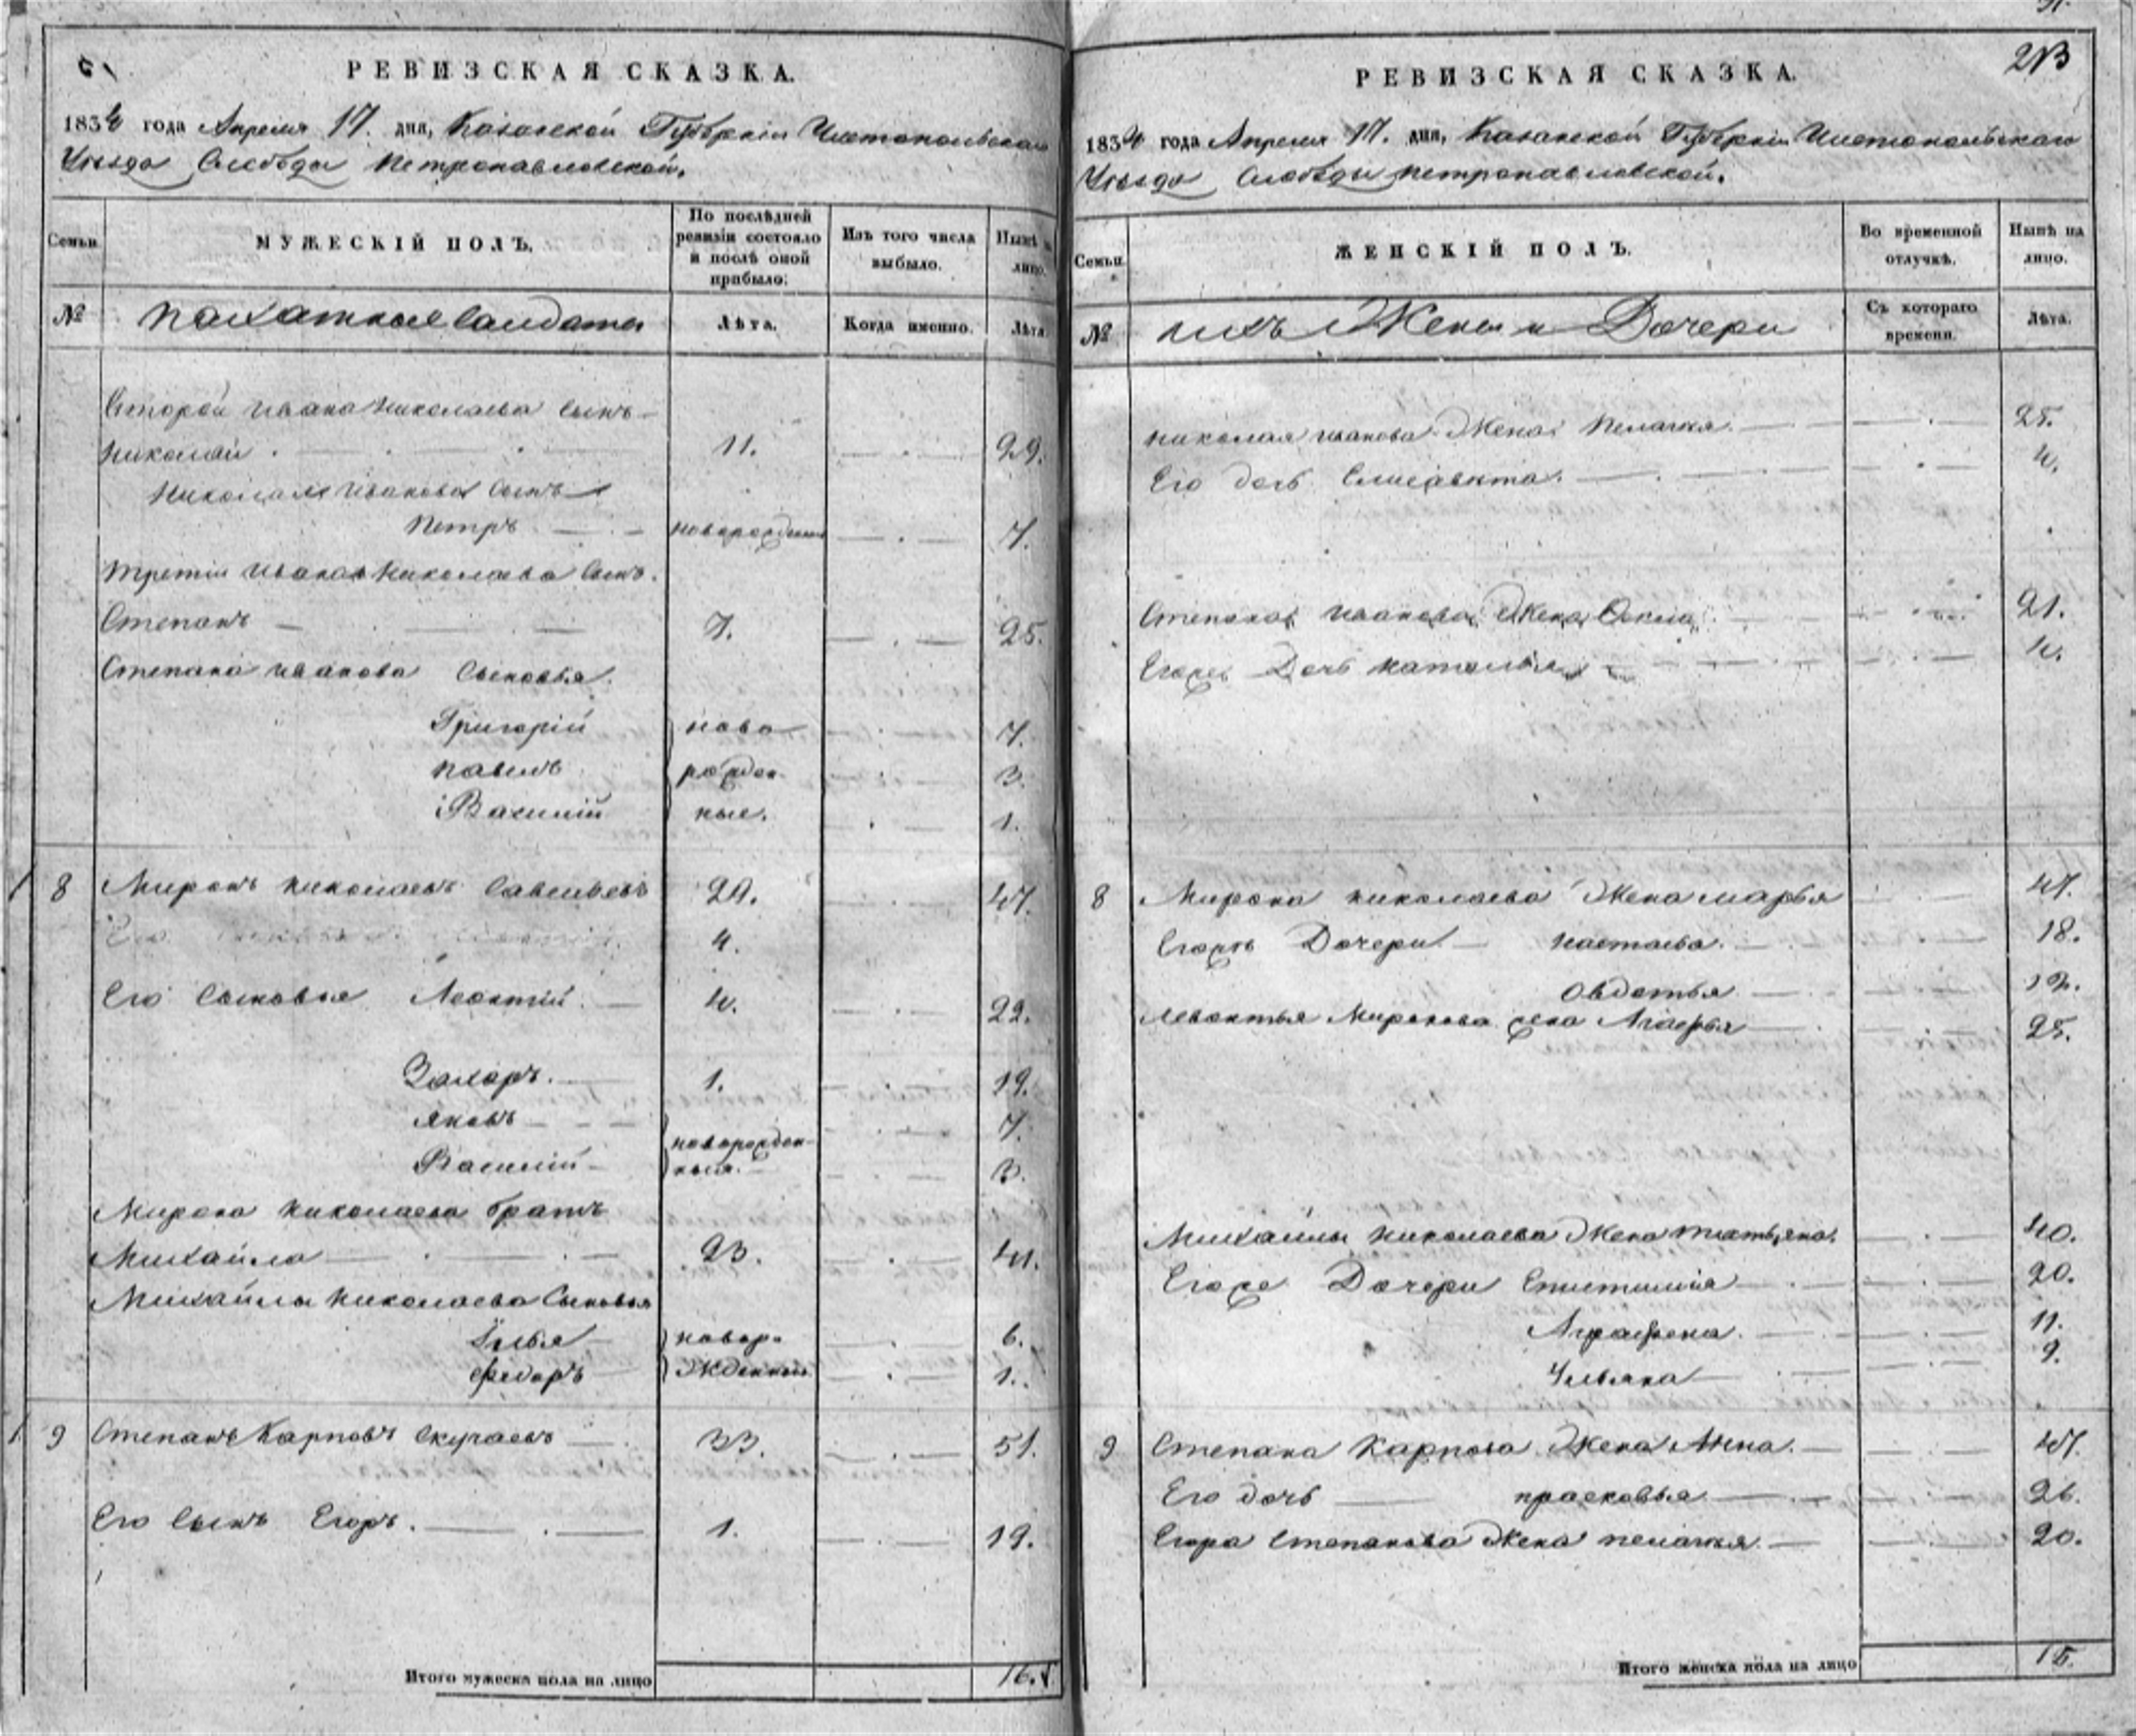 РЕВИЗСКАЯ СКАЗКА.
1834 года Апреля 17. дня, Казанской Губерніи Чистопольскаго
Уезда Слободы Петропавловской.
Семьи. МУЖЕСКІЙ ПОЛЪ. По послѣдней ревизіи состояло и послѣ оной прибыло: Изъ того числа выбыло. Нынѣ на лицо.
№ Пахатныя Салдаты Лѣта. Когда именно. Лѣта
Второй Ивана Николаева Сынъ
Николай 11. 29.
Николая Иванова Сынъ
Петръ новорожденный 7.
Третій Ивана Николаева Сынъ.
Степанъ 7. 25.
Степана Иванова Сыновья.
Григорій ново 7.
Павелъ рожден 3.
Василій ные. 1.
8 Миронъ Николаевъ Савельевъ 29. 47.
4.
Его Сыновья Леонтій. 4. 22.
Захаръ. 1. 19.
Яковъ новорожден 7.
Василій ныя. 3.
Мирона Николаева братъ
Михайло 23. 41.
Михайлы Николаева Сыновья
Илья новоро 6.
Федоръ жденныя 1.
9 Степанъ Карповъ Скучаевъ 33. 51.
Его Сынъ Егоръ. 1. 19.
Итого мужеска пола на лицо 16.
213
РЕВИЗСКАЯ СКАЗКА.
1834 года Апреля 17. дня, Казанской Губерніи Чистопольскаго
Уезда Слободы Петропавловской.
Семьи. ЖЕНСКІЙ ПОЛЪ. Во временной отлучкѣ. Нынѣ на лицо.
№ ихъ Жены и Дочери Съ котораго времени. Лѣта.
Николая Иванова Жена Пелагея 25.
Его дочь Елисавета. 4.
Степана Иванова Жена 21.
Егоже Дочь Наталья 4.
8 Мирона Николаева Жена Марья 47.
Егожъ Дочери Настасья. 18.
Овдотья 12.
Левонтья Миронова жена Марья 25.
Михайлы Николаева Жена Татьяна. 40.
Егоже Дочери 20.
Аграфена. 11.
Ульяна 9.
9 Степана Карпова Жена Анна. 47.
Его дочь прасковья 26.
Егора Степанова Жена пелагея 20.
Итого женска пола на лицо 15.